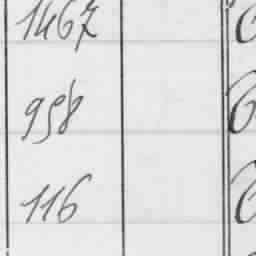 1467
958
116